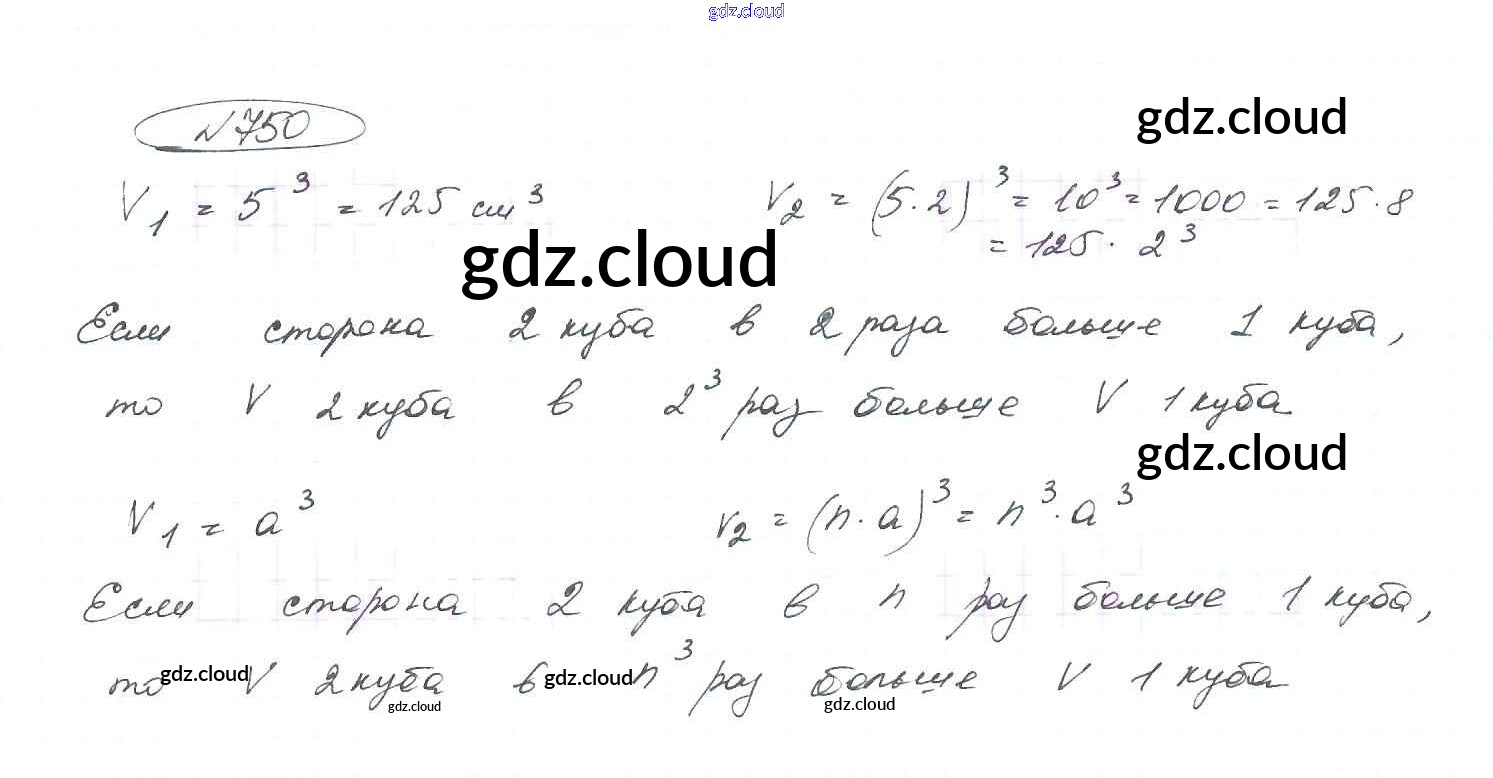 gdz.cloud
№750
gdz.cloud
V₁ = 5³ = 125 см³
V₂ = (5·2)³ = 10³ = 1000 = 125·8
= 125 · 2³
gdz.cloud
Если сторона 2 куба в 2 раза больше 1 куба,
то V 2 куба в 2³ раз больше V 1 куба
gdz.cloud
V₁ = a³
V₂ = (n·a)³ = n³·a³
Если сторона 2 куба в n раз больше 1 куба,
то V 2 куба в n³ раз больше V 1 куба
gdz.cloud
gdz.cloud
gdz.cloud
gdz.cloud